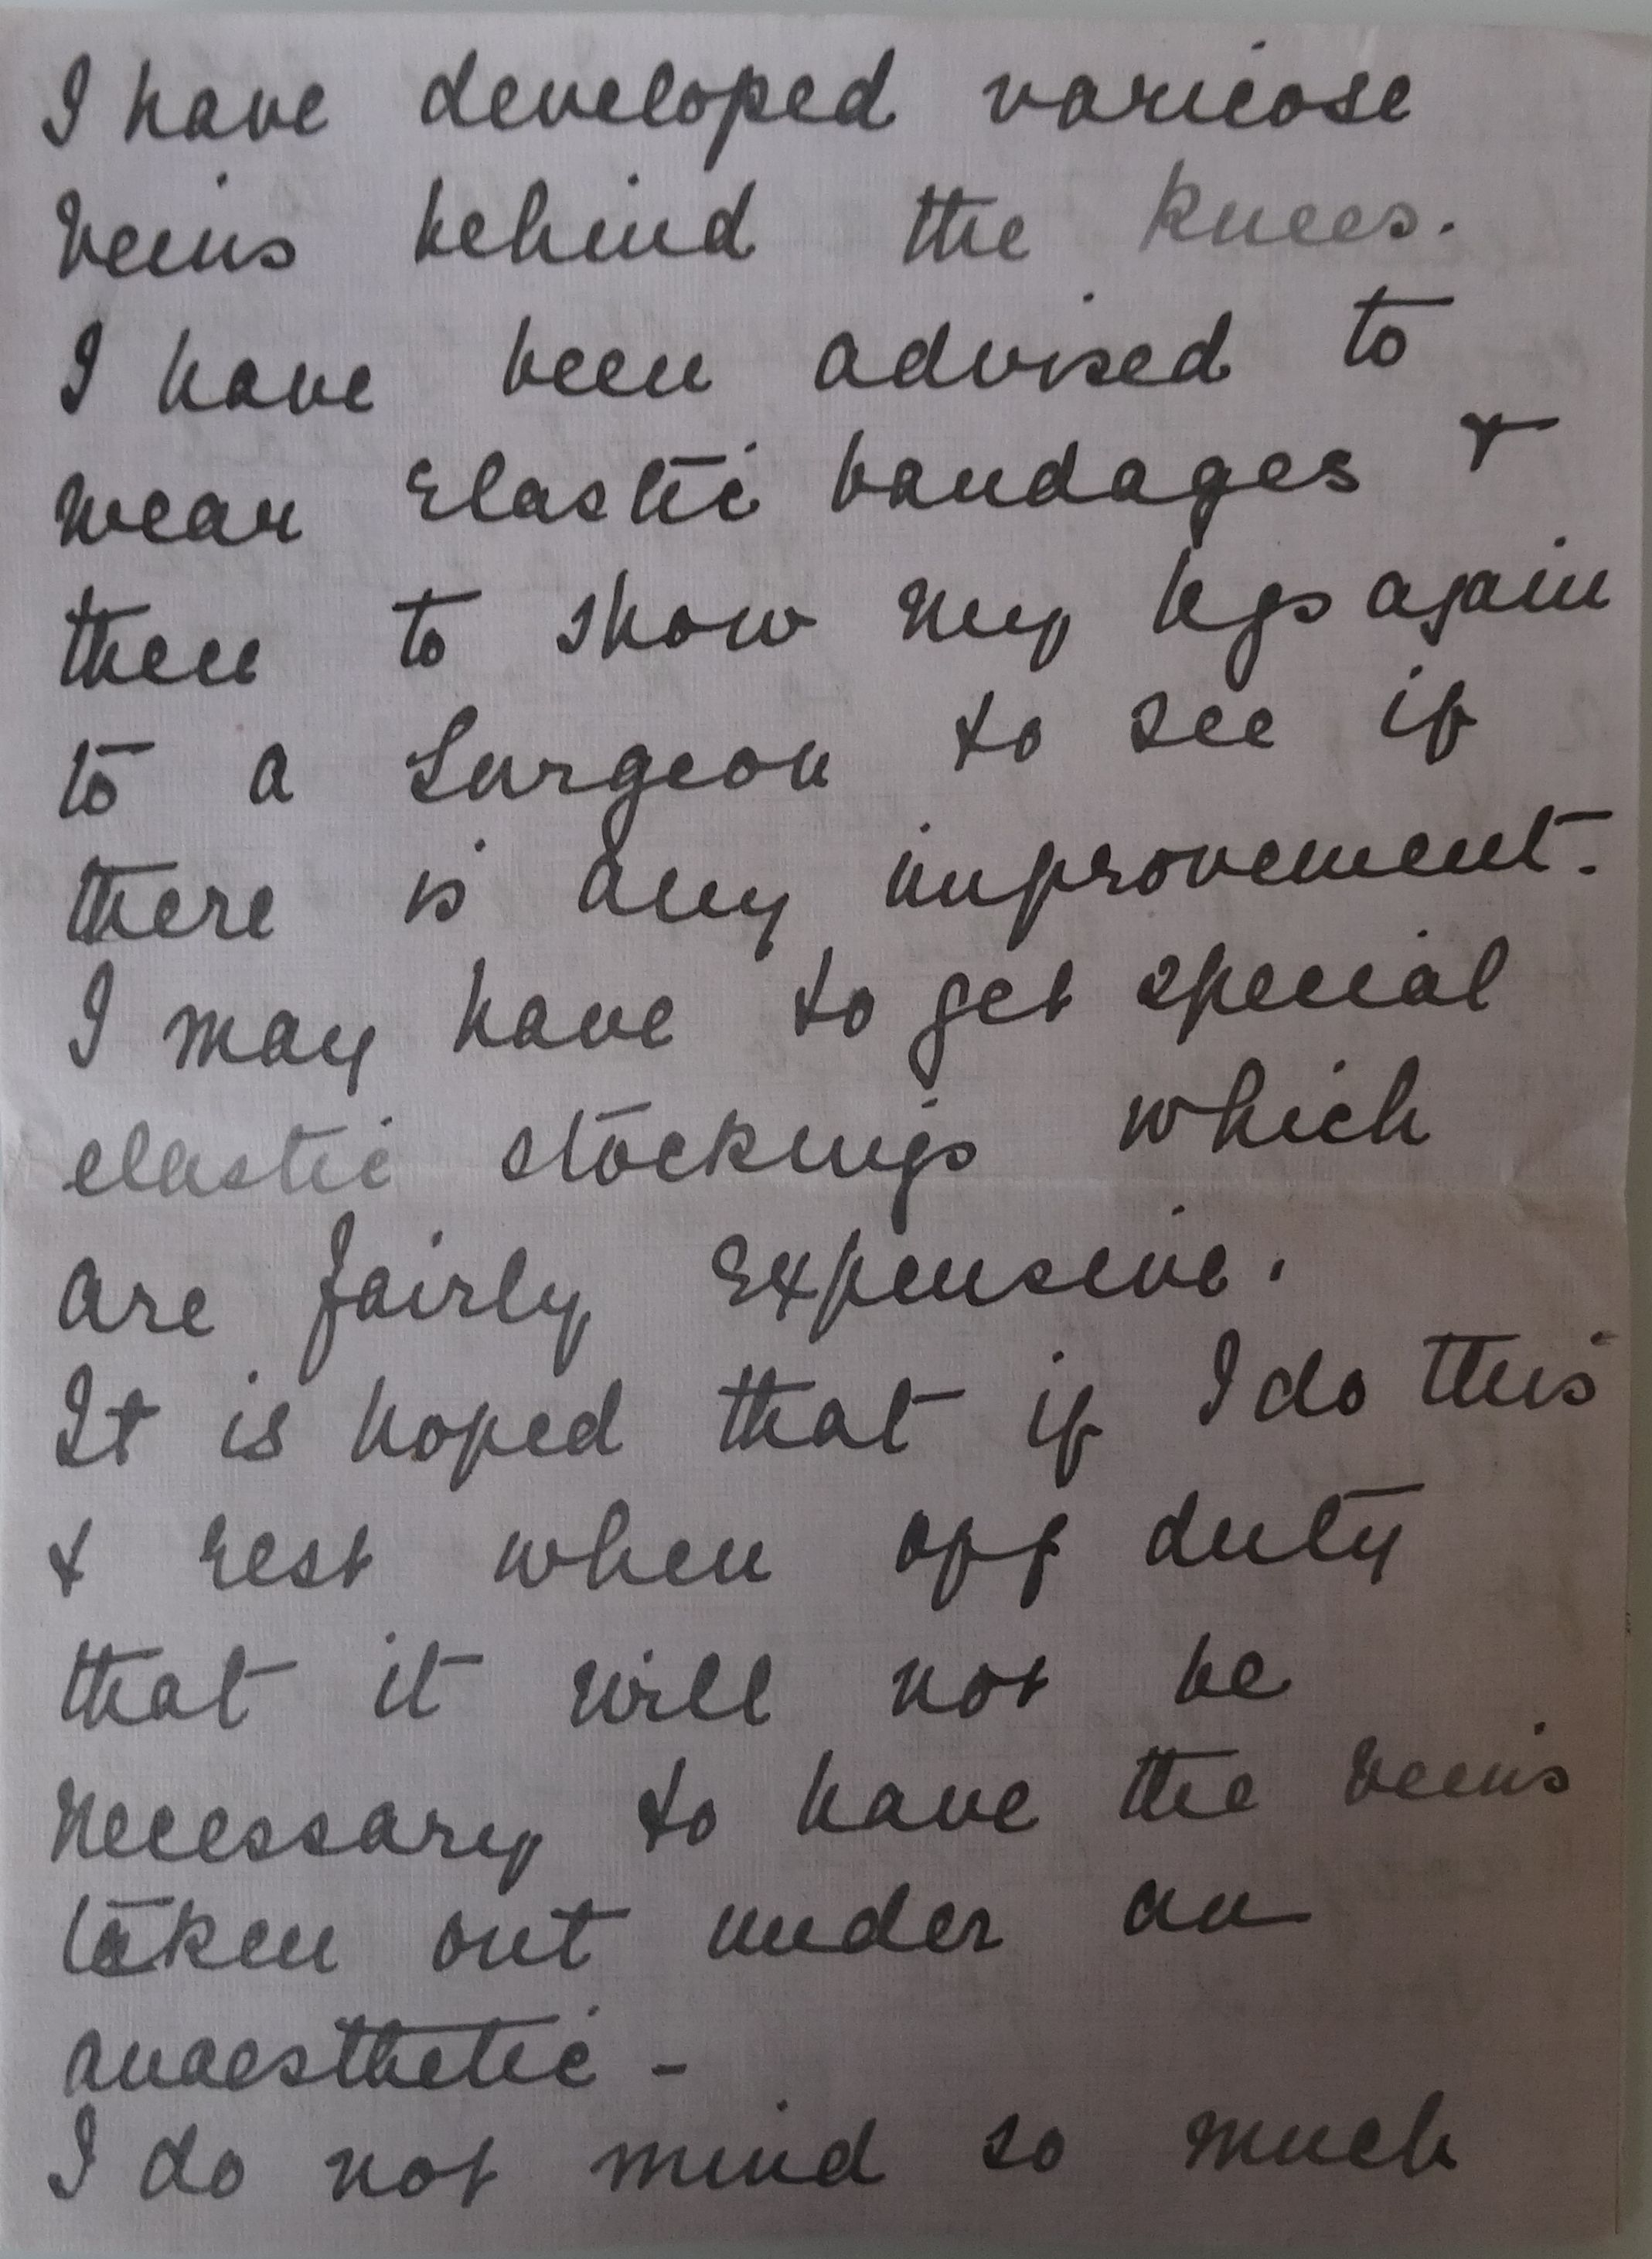 I have developed varicose
veins behind the knees.
I have been advised to
wear Elastic bandages &
then to show my legs again
to a Surgeon to see if
there is any improvement.
I may have to get special
elastic stockings which
are fairly Expensive.
It is hoped that if I do this
& rest when off duty
that it will not be
necessary to have the veins
taken out under an
anaesthetic -
I do not mind so much